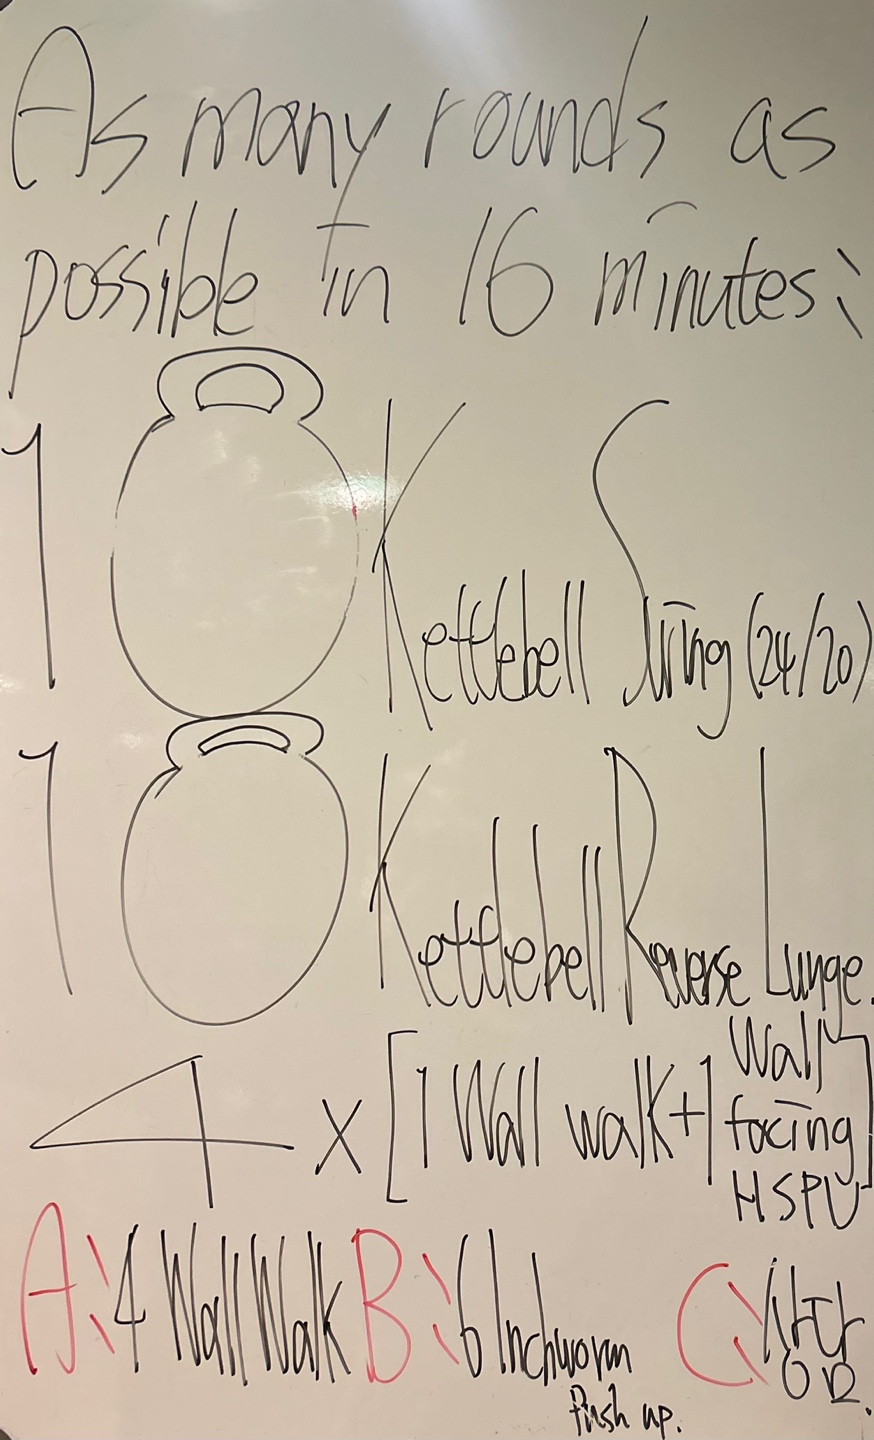 As many rounds as
possible in 16 minutes:
10 Kettlebell Swing (24/20)
10 Kettlebell Reverse Lunge.
4 x [1 Wall walk + 1 Wall facing HSPU]
A: 4 Wall Walk B: 6 Inchworm Push up. C: